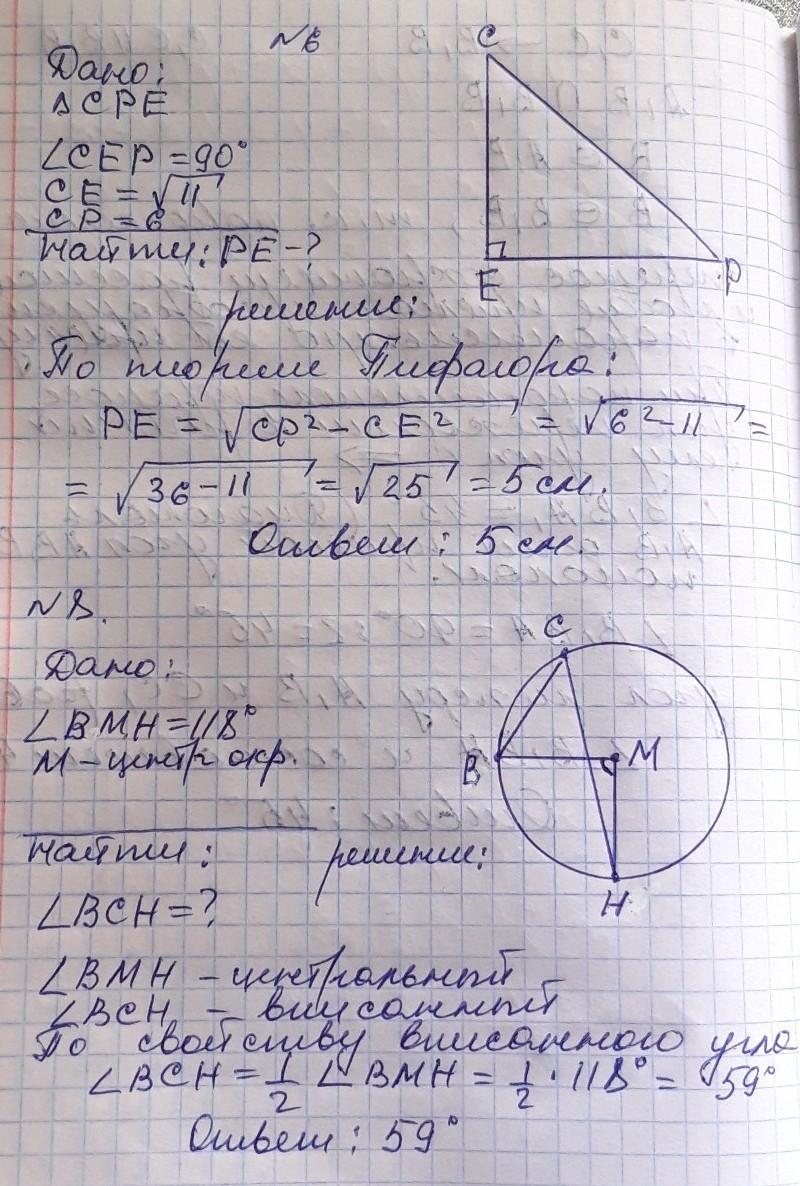 №6
Дано:
△CPE
∠CEP = 90°
CE = √11
CP = 6
Найти: PE - ?
C
E
P
решение:
По теореме Пифагора:
PE = √CP² - CE² = √6² - 11 =
= √36 - 11 = √25 = 5 см.
Ответ: 5 см.
№8.
Дано:
∠BMH = 118°
M - центр окр.
Найти:
∠BCH = ?
C
B
M
H
решение:
∠BMH - центральный
∠BCH - вписанный
По свойству вписанного угла
∠BCH = 1/2 ∠BMH = 1/2 · 118° = 59°
Ответ: 59°